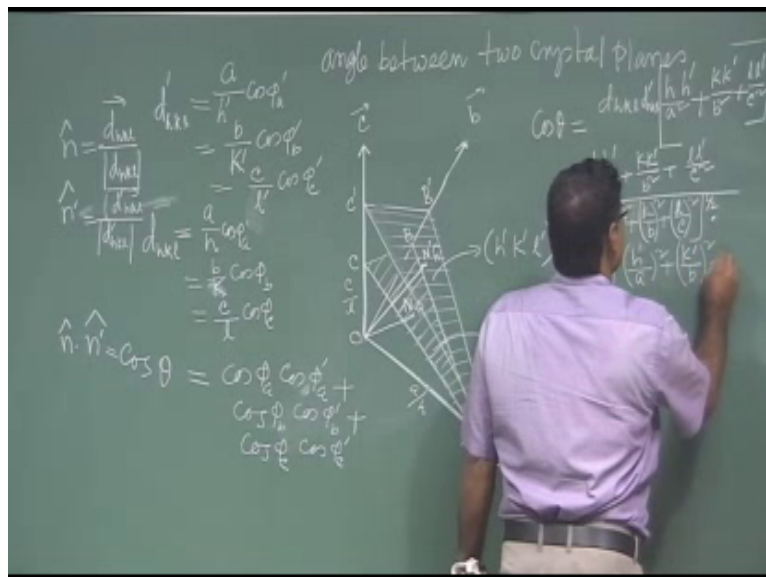 angle between two crystal planes
n̂ = d⃗_hkl / |d_hkl|
n̂' = d⃗'_hkl / |d'_hkl|
d'_hkl = a/h' cosφ'_a
= b/k' cosφ'_b
= c/l' cosφ'_c
d_hkl = a/h cosφ_a
= b/k cosφ_b
= c/l cosφ_c
n̂ . n̂' = cosθ = cosφ_a cosφ'_a +
cosφ_b cosφ'_b +
cosφ_c cosφ'_c
c⃗
b⃗
c'
B'
C
B
c/l
N'
N
O
a/h
(h' k' l')
cosθ =
d_hkl d'_hkl [hh'/a² + kk'/b² + ll'/c²]
+ kk'/b² + ll'/c²
+ (k/b)² + (l/c)²]^½
(h'/a)² + (k'/b)²